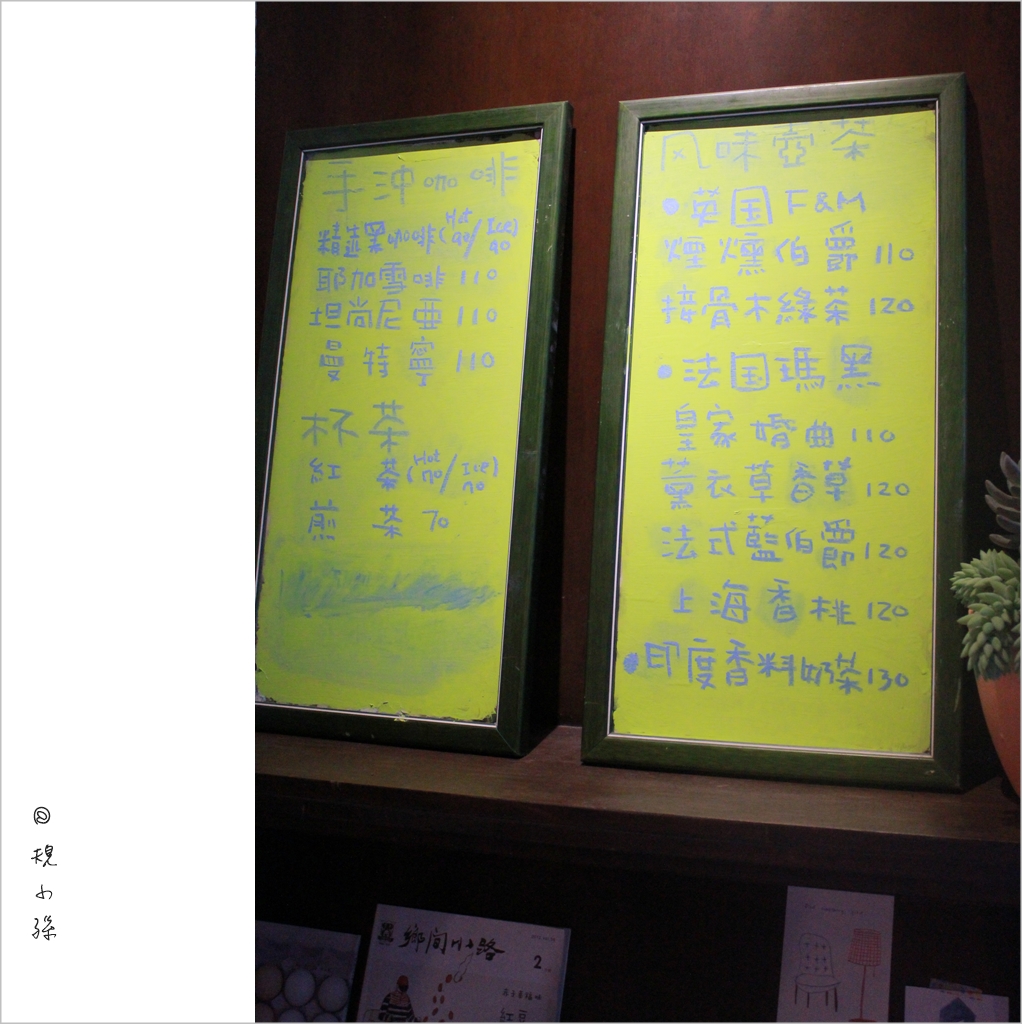 手沖咖啡
精選黑咖啡(Hot 90/Ice 90)
耶加雪啡 110
坦尚尼亞 110
曼特寧 110
杯茶
紅茶(Hot 70/Ice 70)
煎茶 70
风味壺茶
●英国F&M
煙燻伯爵 110
接骨木綠茶 120
●法国瑪黑
皇家婚曲 110
薰衣草香草 120
法式藍伯爵 120
上海香桃 120
印度香料奶茶130
鄉間小路
2
紅豆
@
小